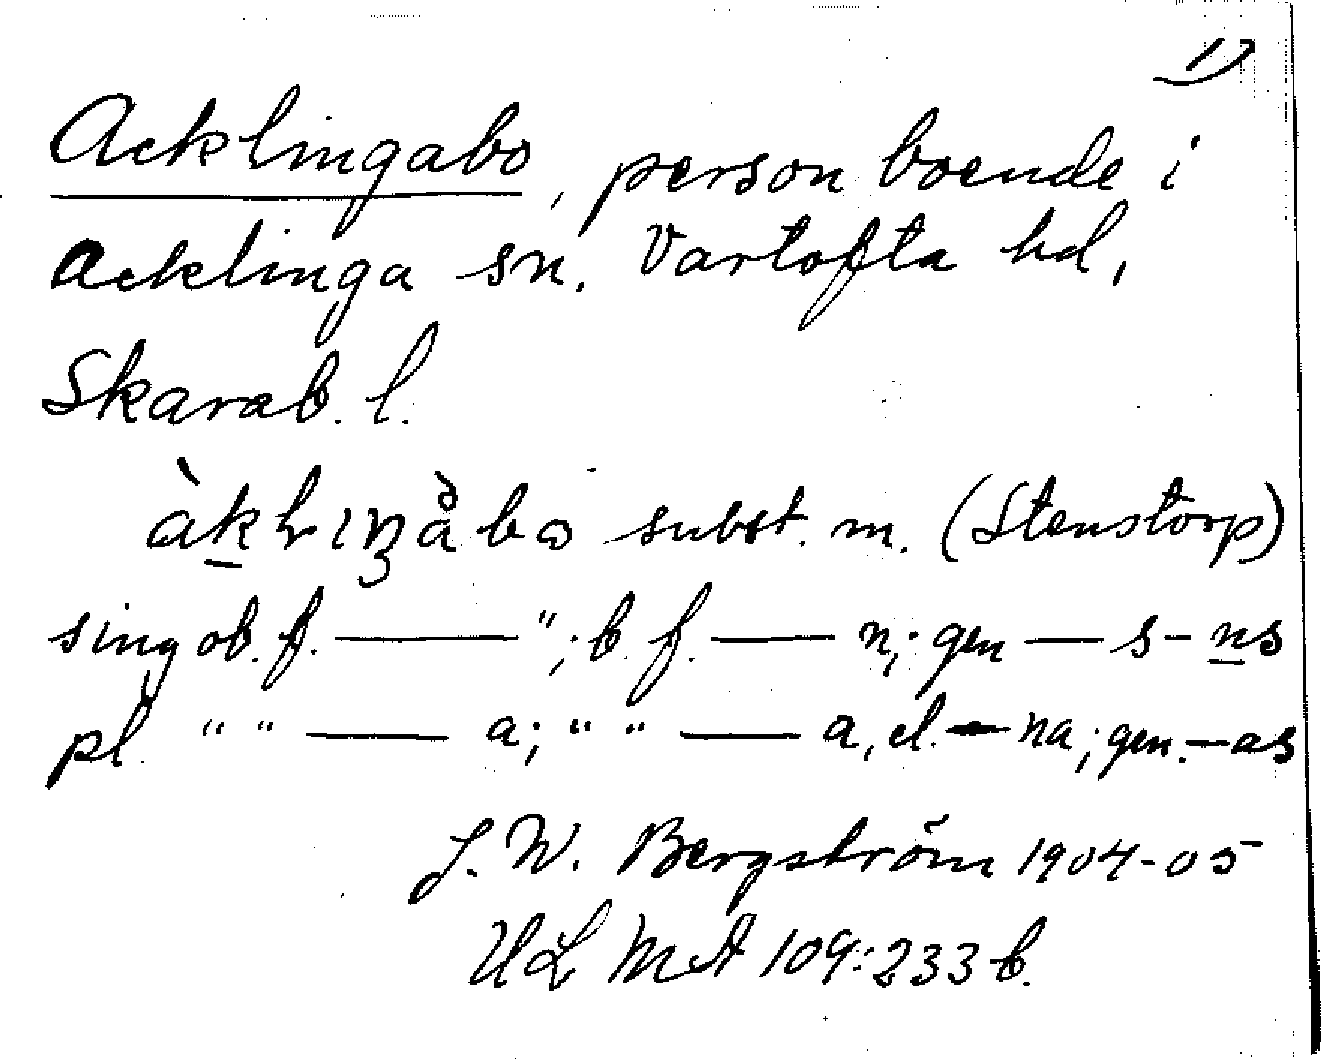 1)
Acklingabo, person boende i
Acklinga sn. Vartofta hd,
Skarab. l.
subst. m. (Stenstorp)
sing ob. f. — "; b. f. — n; gen — s – ns
pl. " " — a; " " — a, el. — na; gen. — as
J. W. Bergström 1904-05
ULMA 109:233 b.